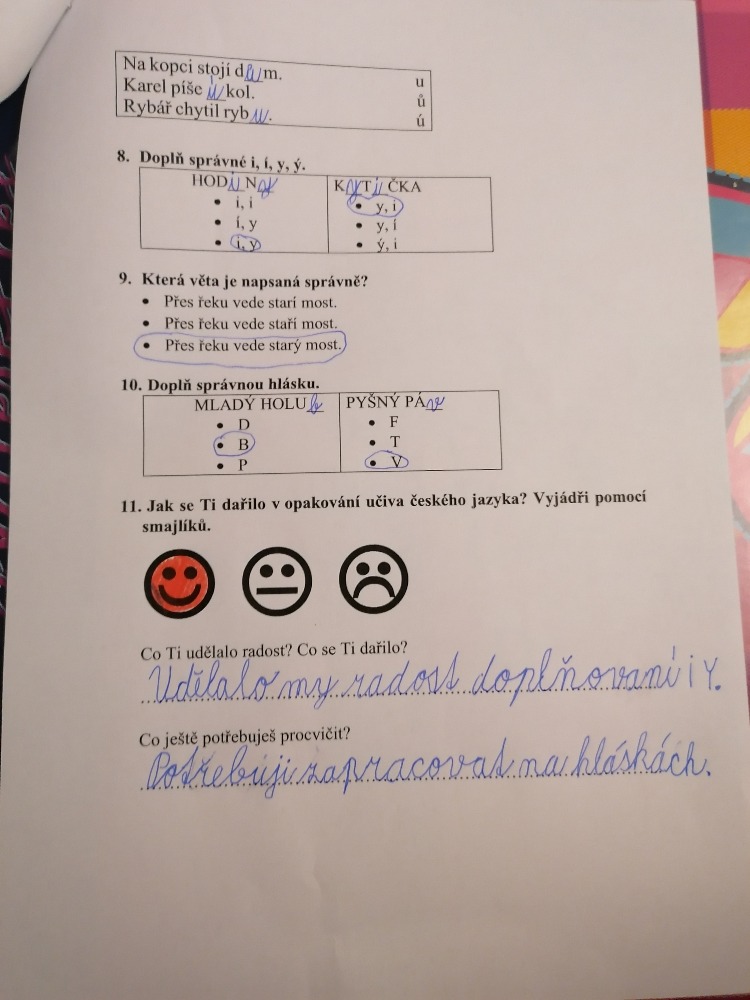 Na kopci stojí dům. u
Karel píše úkol. ů
Rybář chytil rybu. ú
8. Doplň správné i, í, y, ý.
HODINY KYTIČKA
• i, i • y, i
• í, y • y, í
• i, y • ý, i
9. Která věta je napsaná správně?
• Přes řeku vede starí most.
• Přes řeku vede staří most.
• Přes řeku vede starý most.
10. Doplň správnou hlásku.
MLADÝ HOLUb PYŠNÝ PÁv
• D • F
• B • T
• P • V
11. Jak se Ti dařilo v opakování učiva českého jazyka? Vyjádři pomocí
smajlíků.
Co Ti udělalo radost? Co se Ti dařilo?
Udělalo my radost doplňovaní i Y.
Co ještě potřebuješ procvičit?
Potřebuji zapracovat na hláskách.